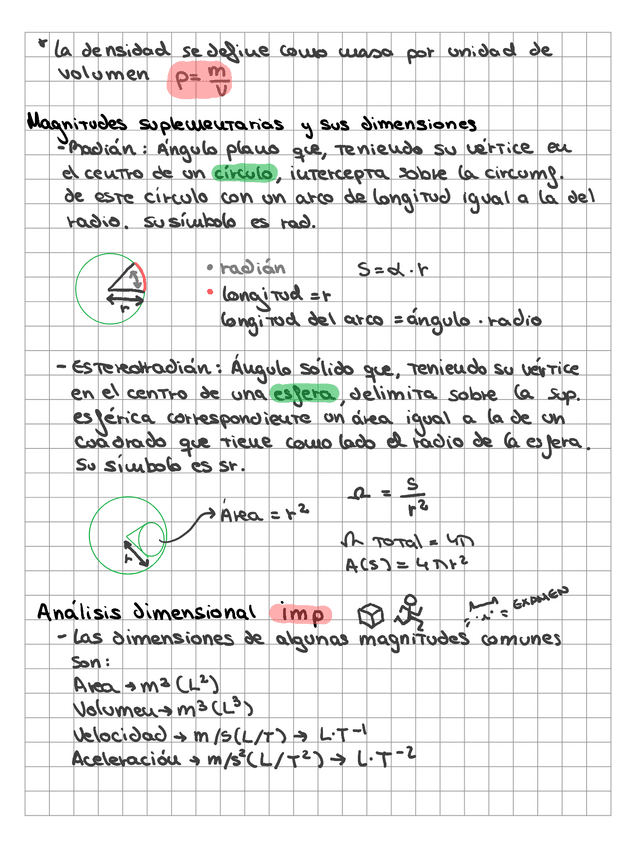 * La densidad se define como masa por unidad de
volumen ρ= m/v
Magnitudes suplementarias y sus dimensiones
- Radián: Ángulo plano que, teniendo su vértice en
el centro de un círculo, intercepta sobre la circumf.
de este círculo con un arco de longitud igual a la del
radio. Su símbolo es rad.
• radián S=α·r
• longitud = r
r
longitud del arco = ángulo · radio
- Estereorradián: Ángulo sólido que, teniendo su vértice
en el centro de una esfera, delimita sobre la sup.
esférica correspondiente un área igual a la de un
cuadrado que tiene como lado el radio de la esfera.
Su símbolo es sr.
Ω = s/r²
Área = r²
r
Ω total = 4π
A(s) = 4πr²
Análisis dimensional imp = EXAMEN
- Las dimensiones de algunas magnitudes comunes
son:
Area → m² (L²)
Volumen → m³ (L³)
Velocidad → m/s (L/T) → L·T⁻¹
Aceleración → m/s² (L/T²) → L·T⁻²